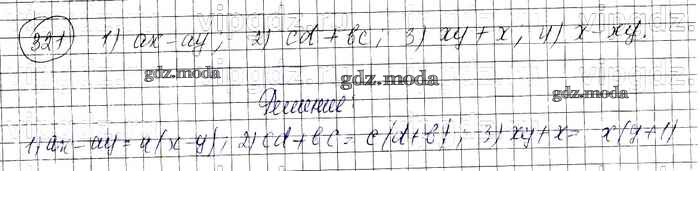 321 1) ax-ay; 2) cd+bc; 3) xy+x; 4) x-xy.
gdz.moda gdz.moda gdz.moda
Решение:
1) ax-ay=a(x-y); 2) cd+bc=c(d+b); 3) xy+x= x(y+1)